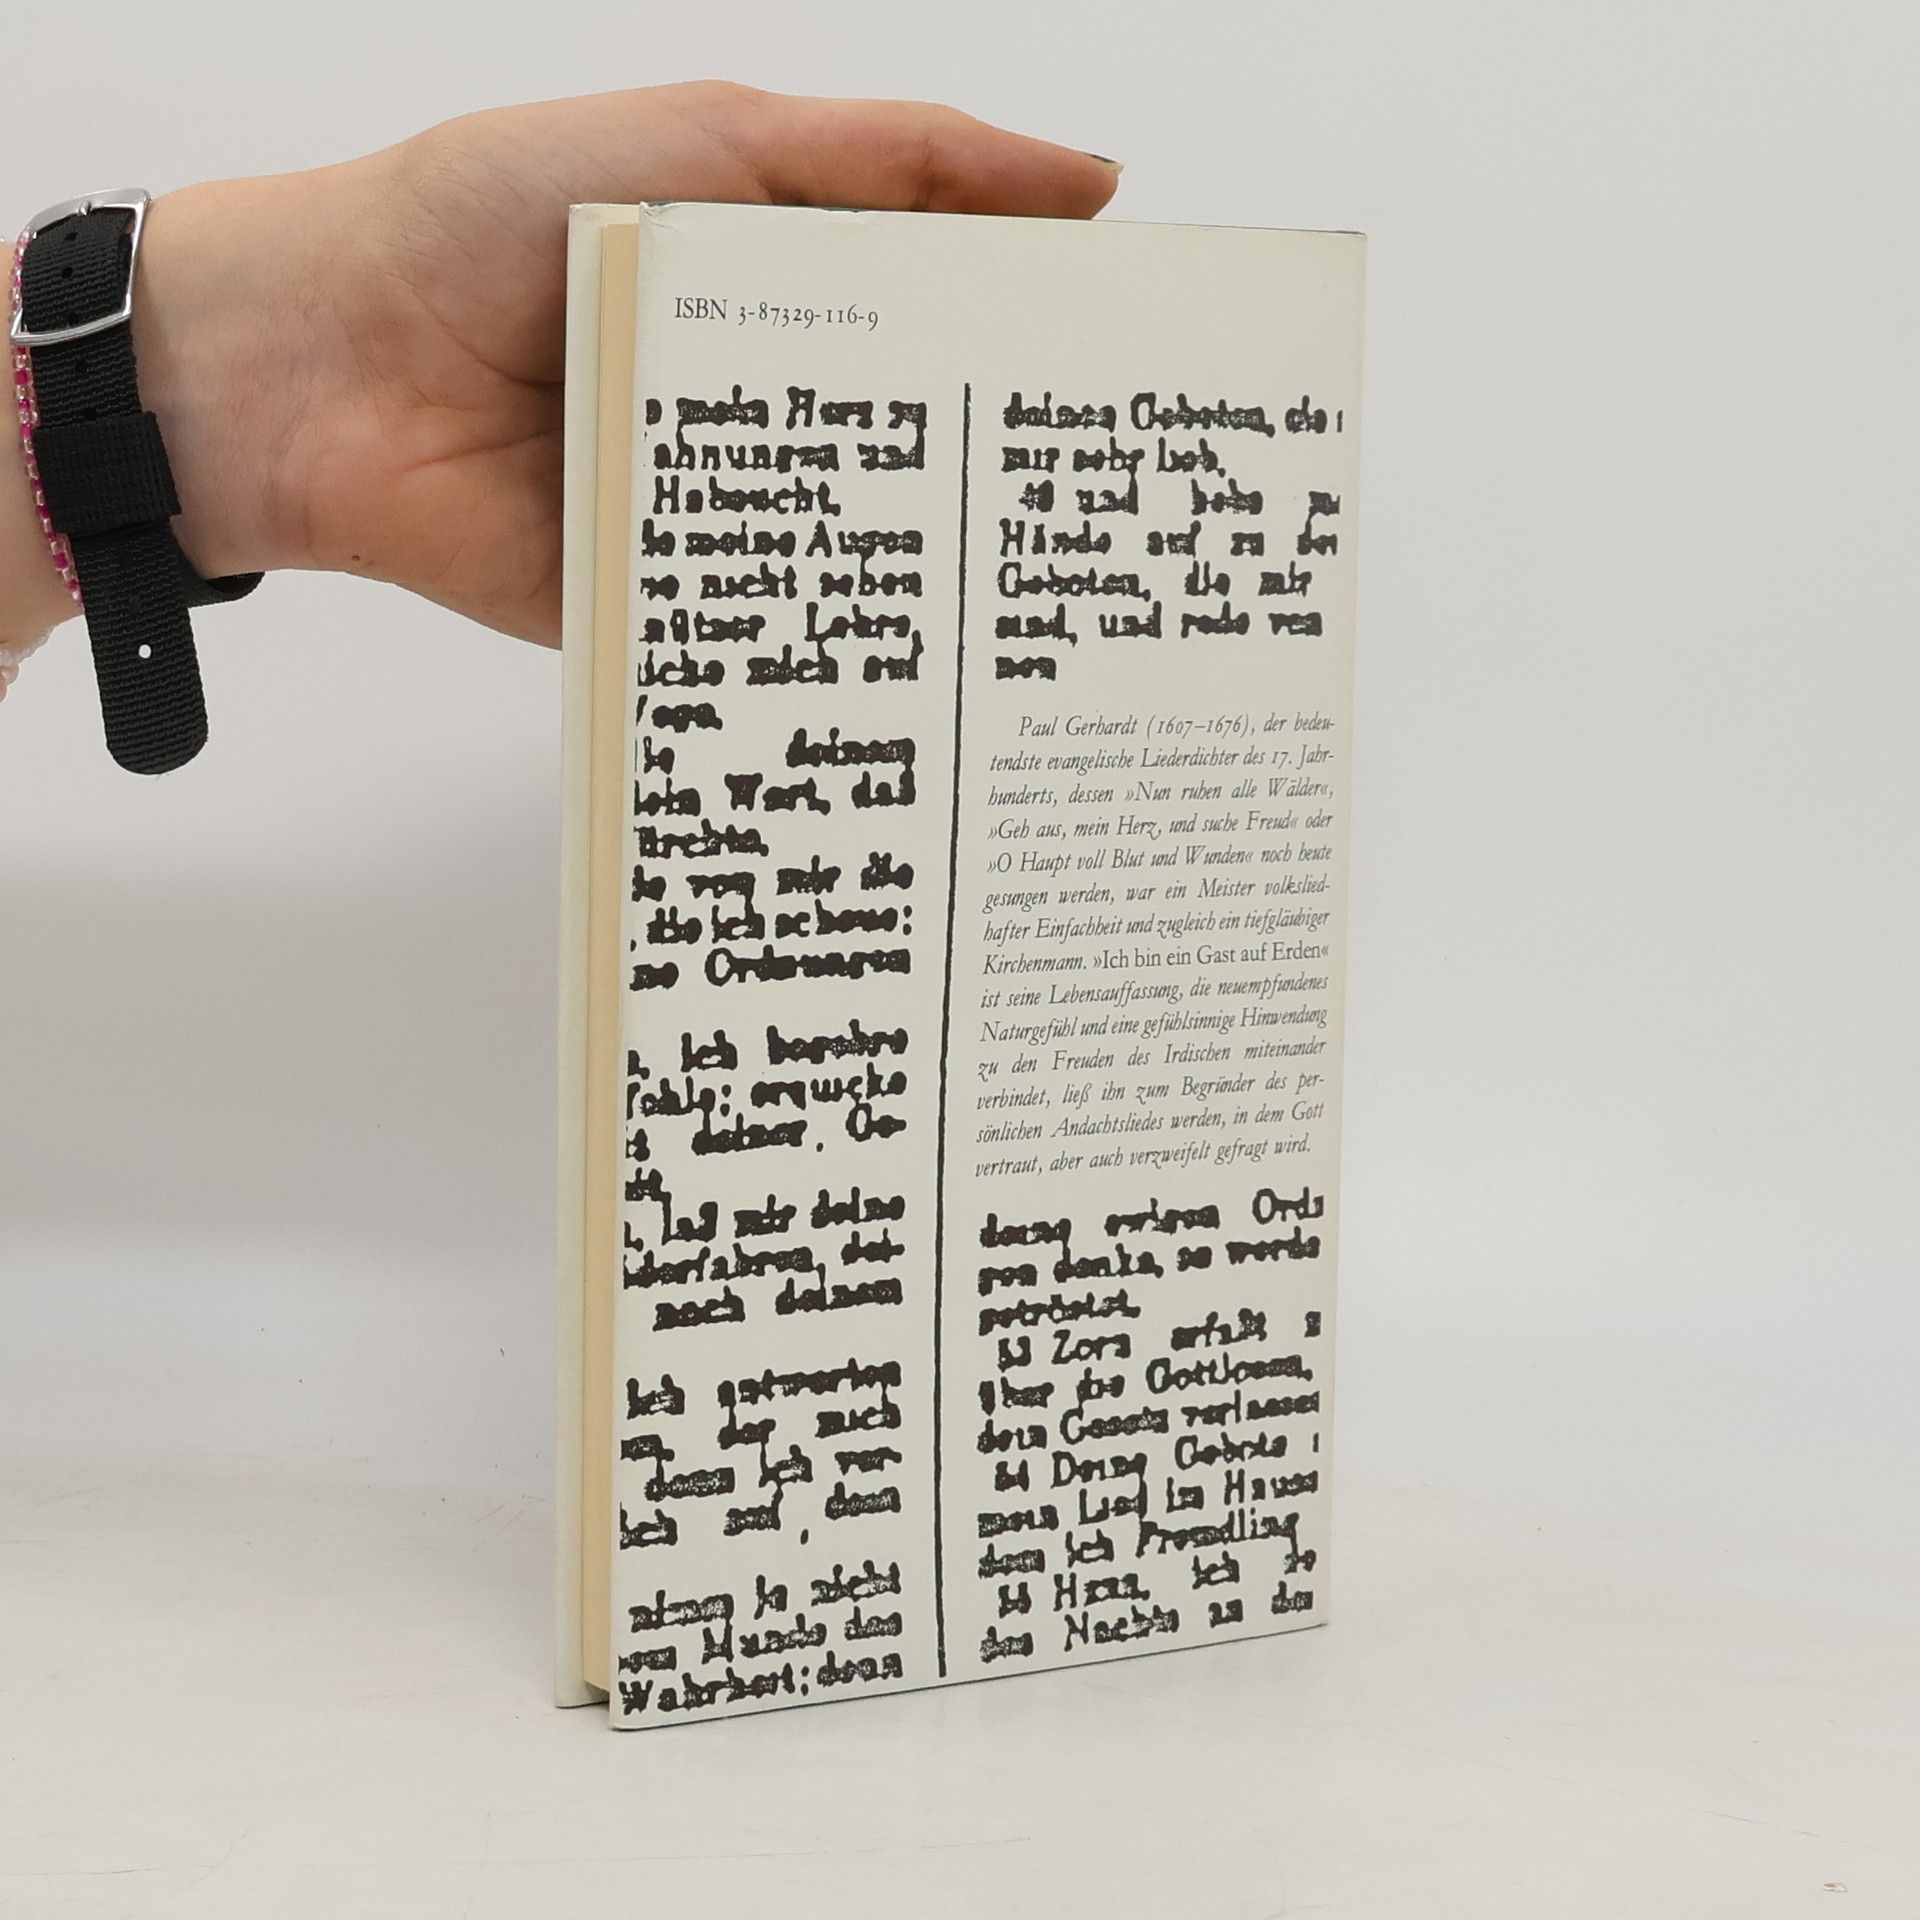 ISBN 3-87329-116-9
mein Herz zu
ahnungen und
Habsucht.
meine Augen
nicht sehen
Lehre,
mich auf
deinem
dein Wort, daß
von mir die
die ich scheue;
Ordnungen
Ich begehre
erquicke
deiner Ge-
laß mir deine
derfahren, dei-
nach deinem
Ich antworten
der mich
denn ich ver-
ich auf dein
nimm ja nicht
Munde das
Wahrheit; denn
deinen Geboten, die
mir sehr lieb,
48 und hebe
Hände auf zu dei
Geboten, die mir
sind, und rede von
nen
Paul Gerhardt (1607–1676), der bedeu-
tendste evangelische Liederdichter des 17. Jahr-
hunderts, dessen »Nun ruhen alle Wälder«,
»Geh aus, mein Herz, und suche Freud« oder
»O Haupt voll Blut und Wunden« noch heute
gesungen werden, war ein Meister volkslied-
hafter Einfachheit und zugleich ein tiefgläubiger
Kirchenmann. »Ich bin ein Gast auf Erden«
ist seine Lebensauffassung, die neuempfundenes
Naturgefühl und eine gefühlsinnige Hinwendung
zu den Freuden des Irdischen miteinander
verbindet, ließ ihn zum Begründer des per-
sönlichen Andachtsliedes werden, in dem Gott
vertraut, aber auch verzweifelt gefragt wird.
deine ewigen Ord
gen denke, so werde
getröstet.
53 Zorn erfaßt
über die Gottlosen,
dein Gesetz verlassen
54 Deine Gebote
mein Lied im Hause
dem ich Fremdling
55 Herr, ich
des Nachts an dei